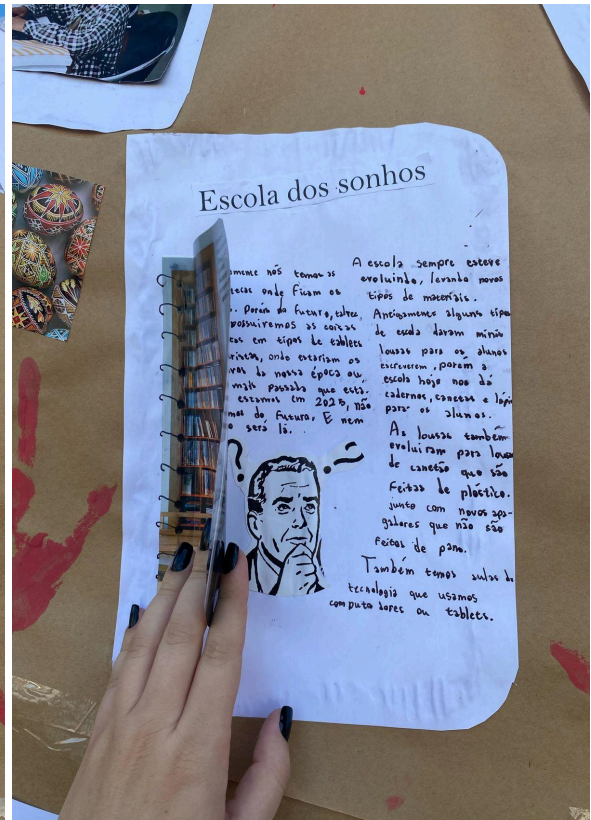 Escola dos sonhos
mente nós temos as
tecas onde ficam os
. Porém do futuro, talvez,
possuiremos as coisas
tas em tipos de tablets
ristas, onde estariam os
ros da nossa época ou
mais passada que está.
estamos em 2023, não
mos do futuro. E nem
o será lá.
A escola sempre esteve
evoluindo, levando novos
tipos de materiais.
Antigamente alguns tipos
de escola davam minis
lousas para os alunos
escreverem, porém a
escola hoje nos dá
cadernos, canetas e lápis
para os alunos.
As lousas também
evoluiram para lousa
de canetão que são
feitas de plástico.
junto com novos apa-
gadores que não são
feitos de pano.
Também temos aulas de
tecnologia que usamos
computadores ou tablets.